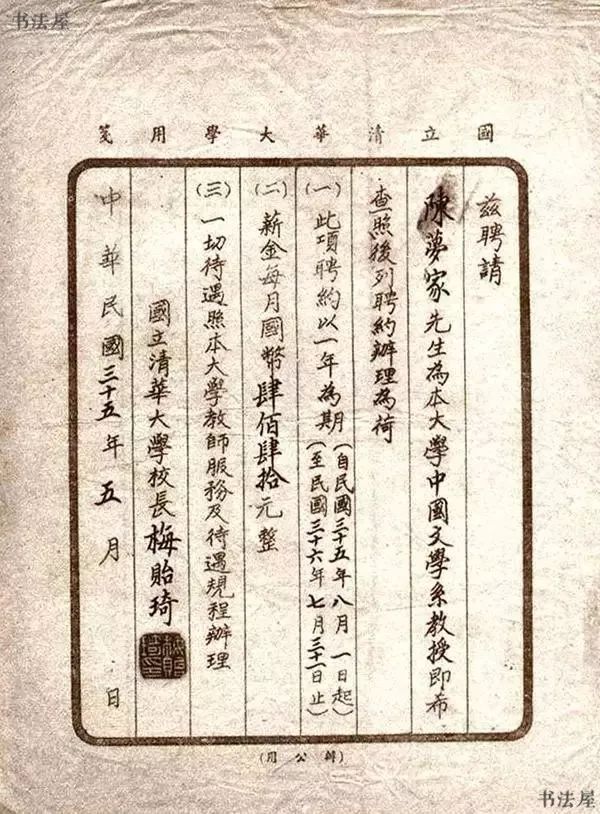 书法屋
國立清華大學用箋
兹聘請
陳夢家先生為本大學中國文學系教授即希
查照後列聘約辦理為荷
(一)此項聘約以一年為期(自民國三十五年八月一日起
至民國三十六年七月三十一日止)
(二)薪金每月國幣肆佰肆拾元整
(三)一切待遇照本大學教師服務及待遇規程辦理
國立清華大學校長梅貽琦
中華民國三十五年五月 日
(用公辦)
书法屋